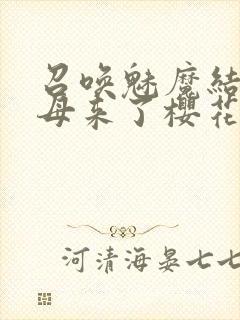 召唤魅魔结
母来了樱花
河清海晏七七